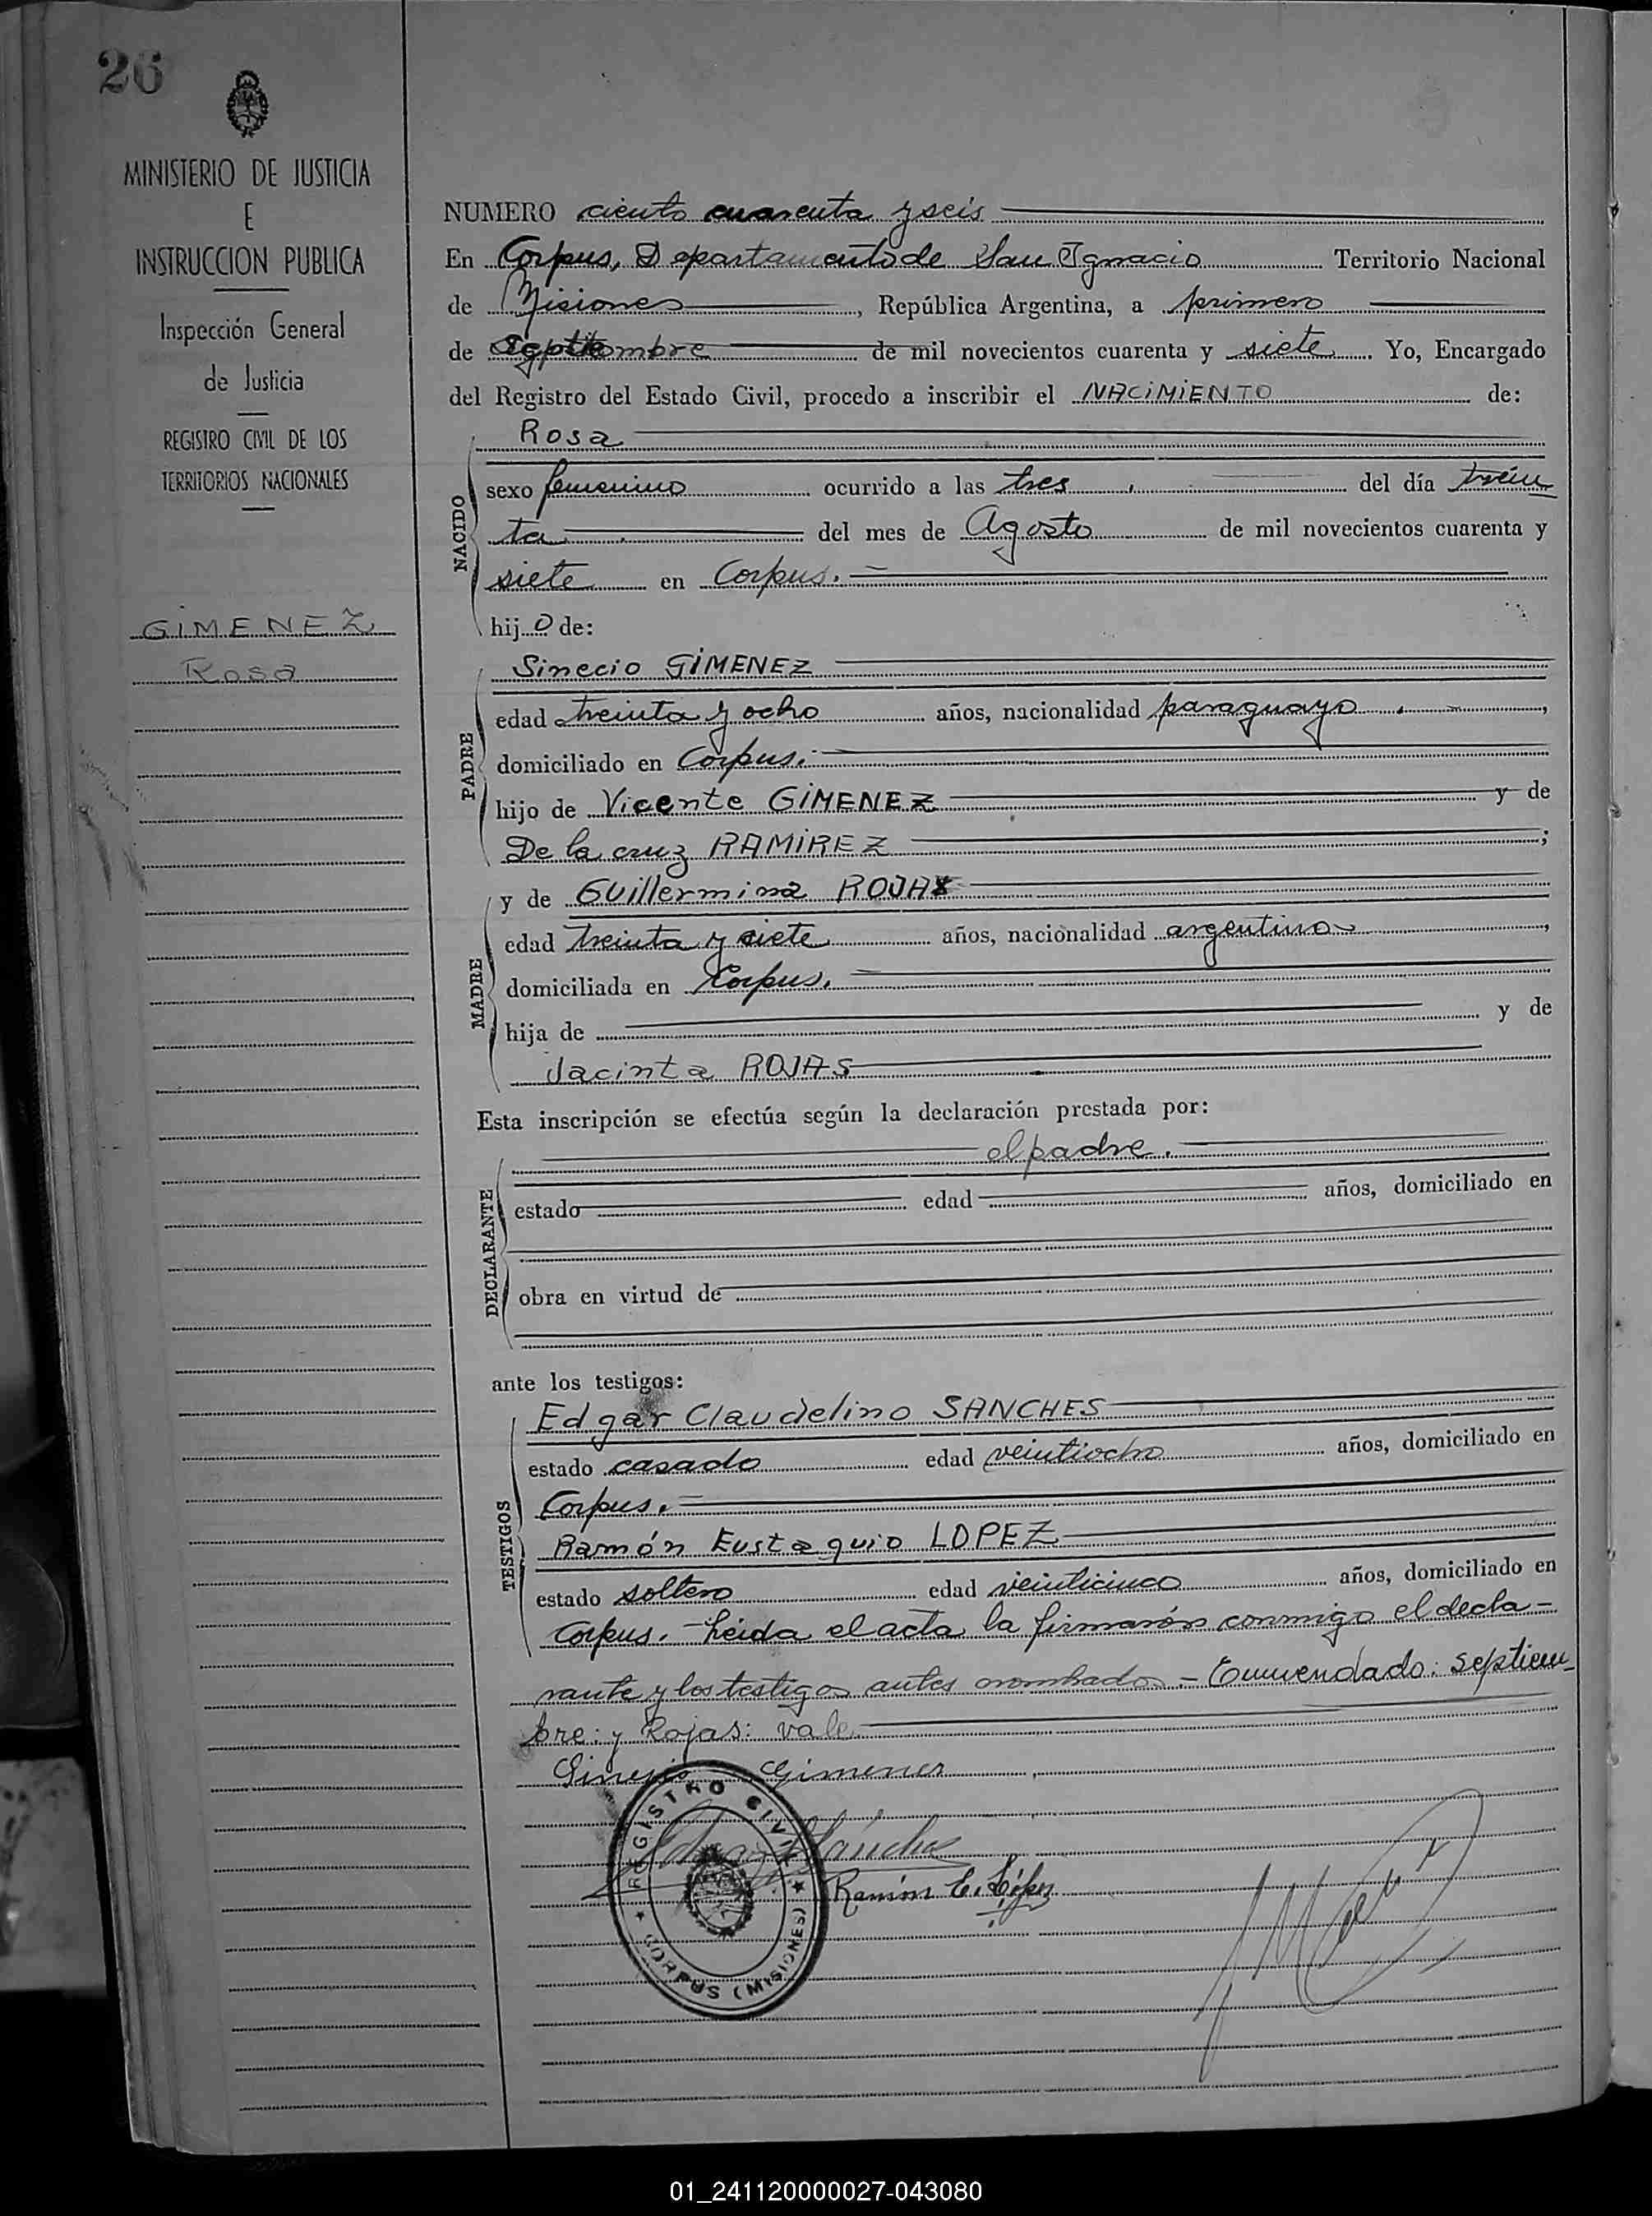 26
MINISTERIO DE JUSTICIA
E
INSTRUCCION PUBLICA
Inspección General
de Justicia
REGISTRO CIVIL DE LOS
TERRITORIOS NACIONALES
GIMENEZ
Rosa
NUMERO ciento cuarenta y seis
En Corpus, Departamento de San Ignacio Territorio Nacional
de Misiones, República Argentina, a primero
de Septiembre de mil novecientos cuarenta y siete. Yo, Encargado
del Registro del Estado Civil, procedo a inscribir el NACIMIENTO de:
NACIDO
Rosa
sexo femenino ocurrido a las tres del día trein
ta del mes de Agosto de mil novecientos cuarenta y
siete en Corpus.
hijo de:
PADRE
Sinecio GIMENEZ
edad treinta y ocho años, nacionalidad paraguayo,
domiciliado en Corpus.
hijo de Vicente GIMENEZ y de
De la cruz RAMIREZ;
MADRE
y de Guillermina ROJAS
edad treinta y siete años, nacionalidad argentina,
domiciliada en Corpus.
hija de y de
Jacinta ROJAS
Esta inscripción se efectúa según la declaración prestada por:
DECLARANTE
el padre.
estado edad años, domiciliado en
obra en virtud de
ante los testigos:
TESTIGOS
Edgar Claudelino SANCHES
estado casado edad veintiocho años, domiciliado en
Corpus.
Ramón Eustaquio LOPEZ
estado soltero edad veinticinco años, domiciliado en
Corpus. - Leida el acta la firmarón conmigo el decla-
rante y los testigos antes nombrados - Enmendado: septiem-
bre: y Rojas: vale
Sinesio Gimenes
Sánches
Ramón E. López
REGISTRO CIVIL
CORPUS (MISIONES)
01_241120000027-043080